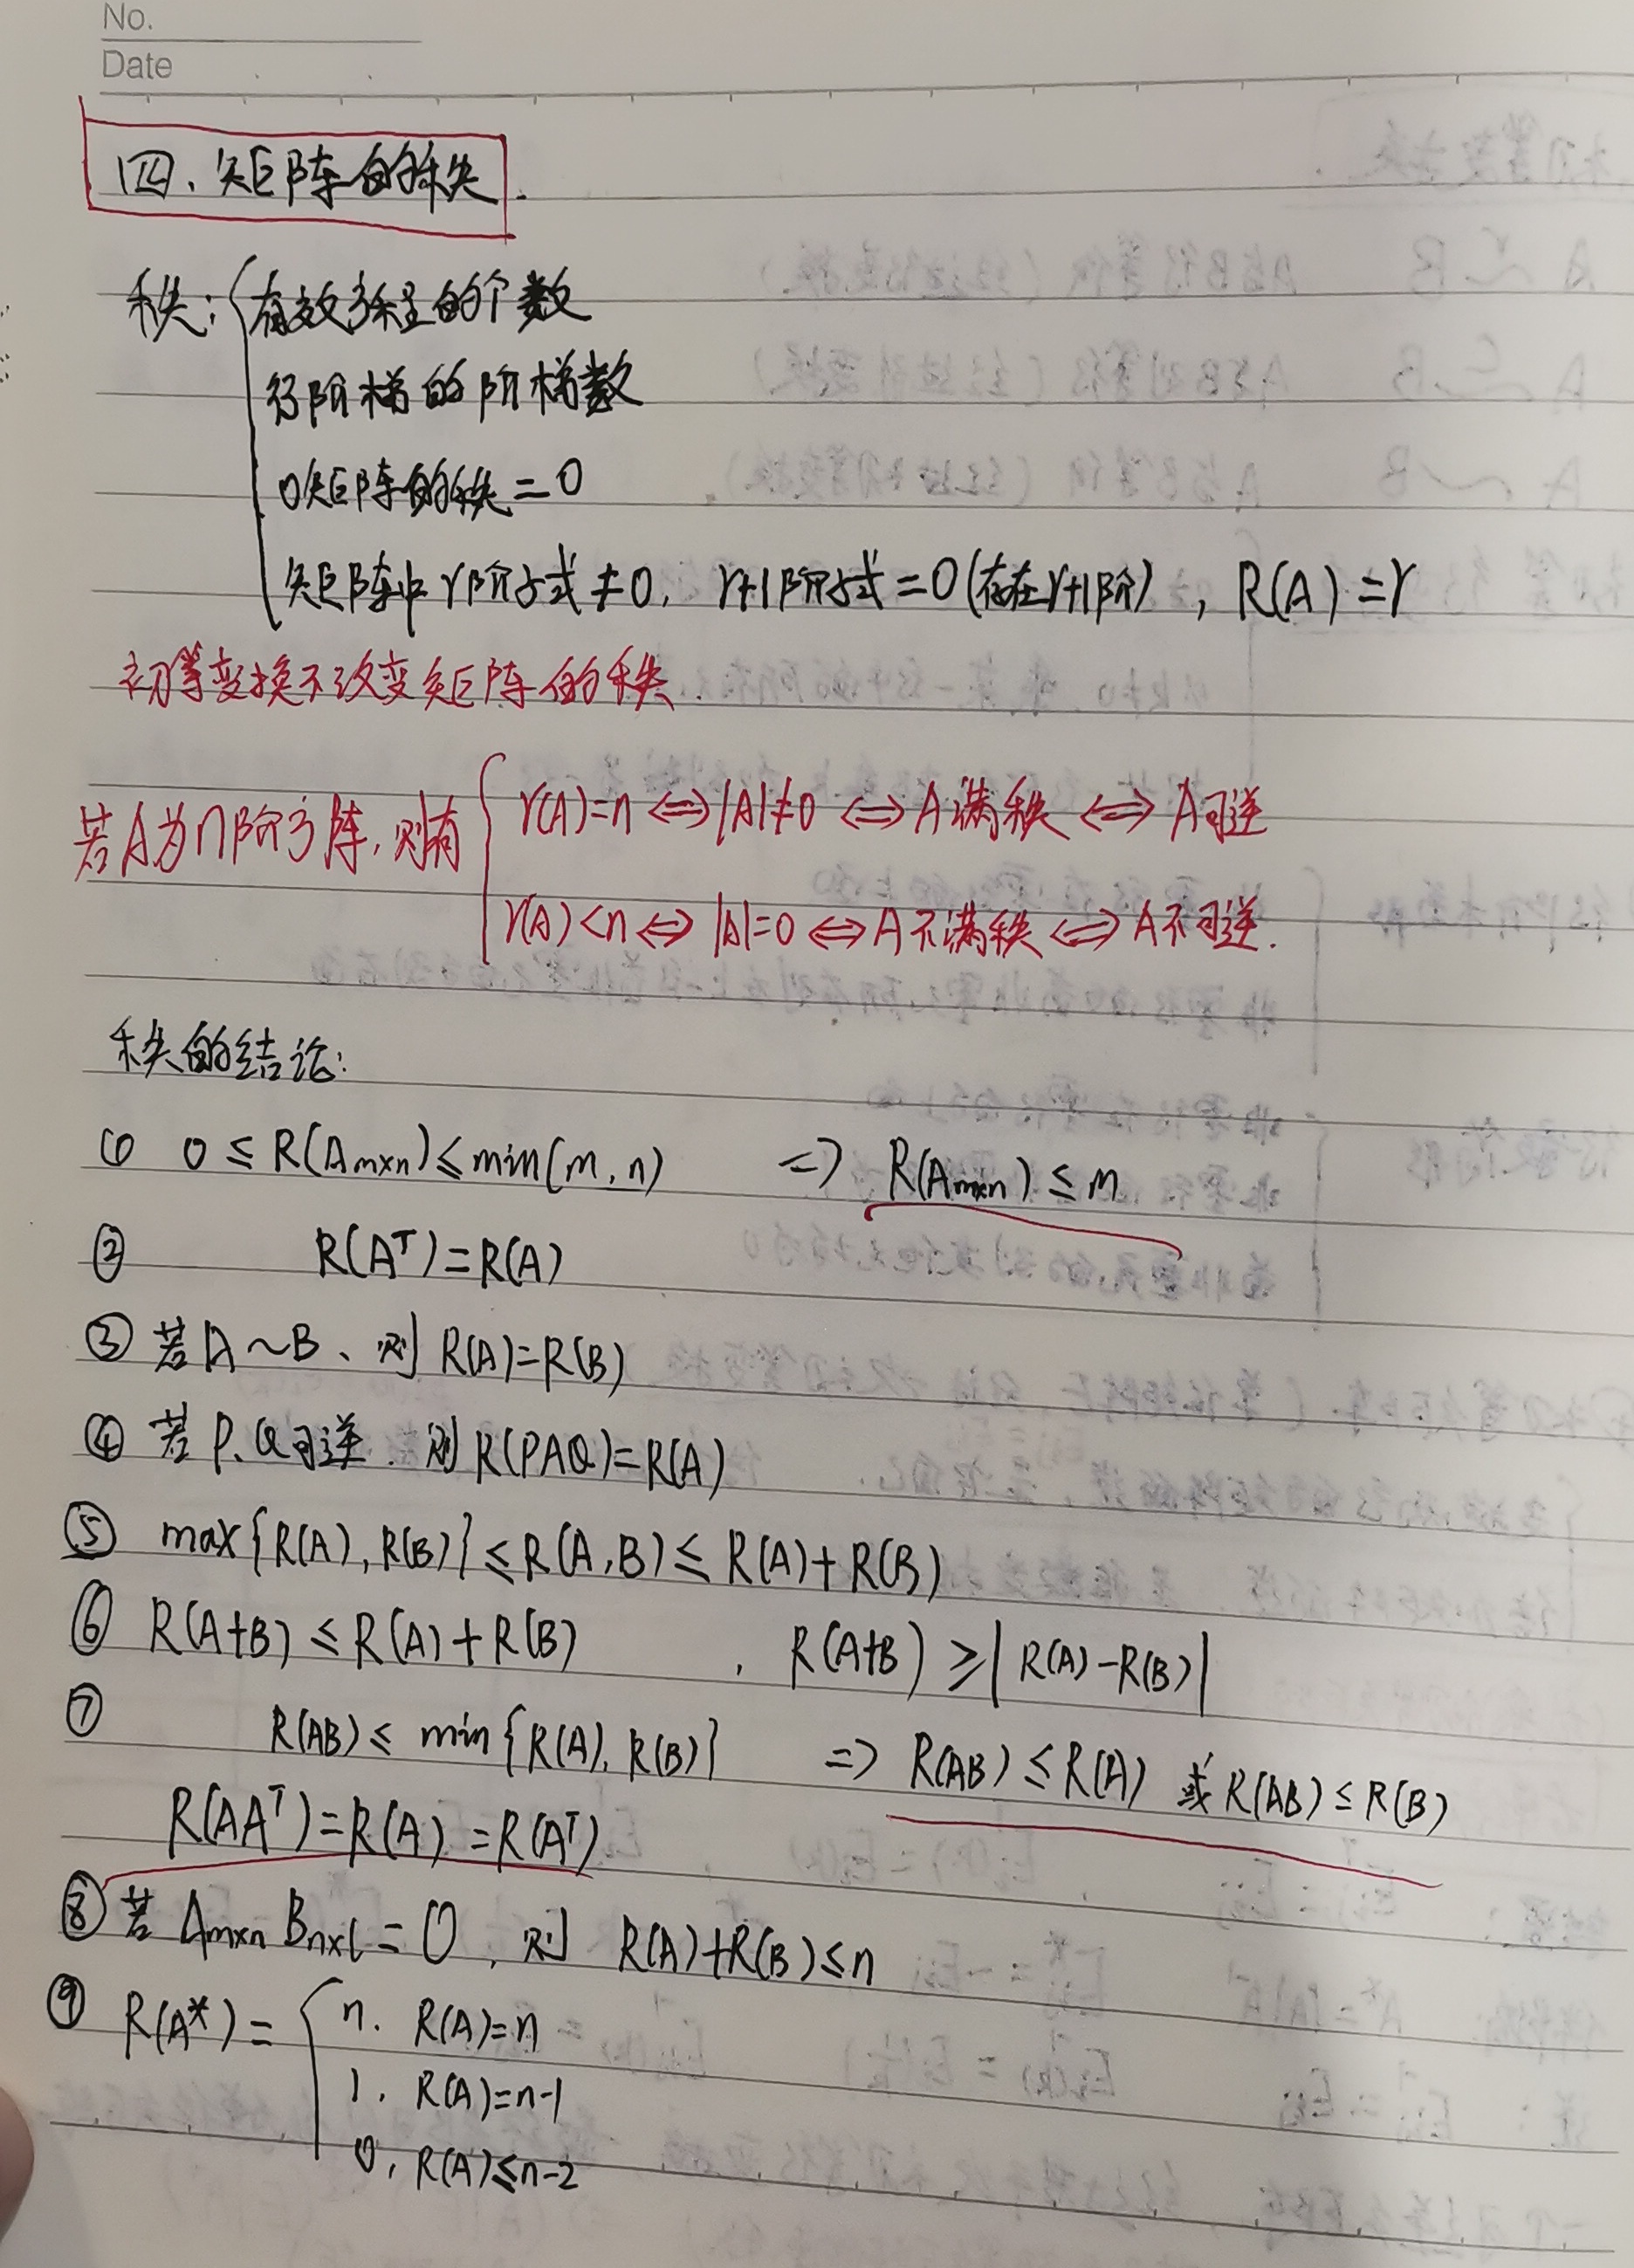 No.
Date
四、矩阵的秩.
秩: 有效方程的个数
行阶梯的阶梯数
0矩阵的秩=0
矩阵中r阶子式≠0, r+1阶子式=0(存在r+1阶), R(A)=r
初等变换不改变矩阵的秩.
若A为n阶方阵,则有 r(A)=n⇔|A|≠0⇔A满秩⇔A可逆
r(A)<n⇔|A|=0⇔A不满秩⇔A不可逆.
秩的结论:
① 0≤R(Am×n)≤min(m,n) ⇒ R(Am×n)≤m
② R(Aᵀ)=R(A)
③ 若A~B、则R(A)=R(B)
④ 若P、Q可逆.则R(PAQ)=R(A)
⑤ max{R(A),R(B)}≤R(A,B)≤R(A)+R(B)
⑥ R(A+B)≤R(A)+R(B) , R(A+B)≥|R(A)-R(B)|
⑦ R(AB)≤min{R(A),R(B)} ⇒ R(AB)≤R(A) 或R(AB)≤R(B)
R(AAᵀ)=R(A)=R(Aᵀ)
⑧ 若Am×n Bn×l=0,则 R(A)+R(B)≤n
⑨ R(A*)= n. R(A)=n
1. R(A)=n-1
0, R(A)≤n-2